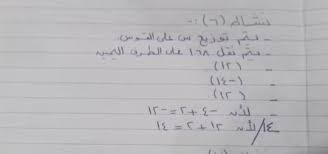 نشاط (٦) :-
- يتم توزيع س على القوس
- يتم نقل ١٦٨ على الطرف اليمين
- (١٢)
- (-١٤)
- (١٢)
- لأن -٤+٢=-١٢
١٤/ لأن ١٢+٢=١٤